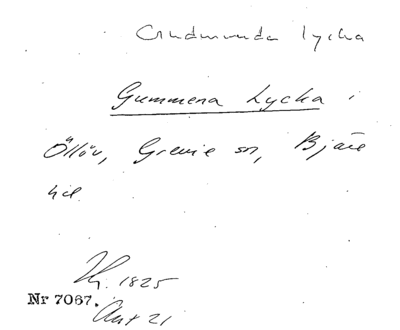 Gudmunda lycka
Gummena Lycka i
Öllöv, Grevie sn, Bjäre
hd.
Hg. 1825
Nr 7067.
Akt 21